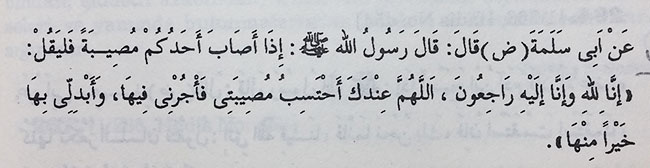 عَنْ اَبِى سَلَمَةَ (ض) قَالَ: قَالَ رَسُولُ الله ﷺ: إِذَا أَصَابَ أَحَدُكُمْ مُصِيبَةً فَلْيَقُلْ:
«إِنَّا لِلهِ وَإِنَّا إِلَيْهِ رَاجِعُونَ، اَللَّهُمَّ عِنْدَكَ أَحْتَسِبُ مُصِيبَتِى فَأْجُرْنِى فِيهَا، وَأَبْدِلِّى بِهَا
خَيْرًا مِنْهَا».